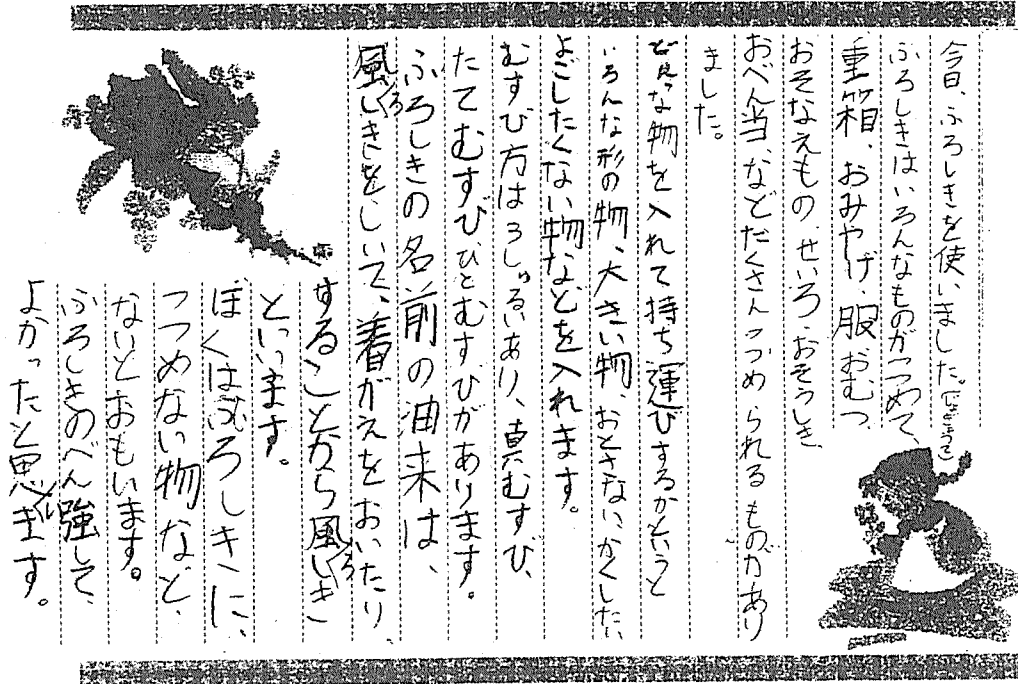 今日、ふろしきを使いました。(じゅぎょうで)
ふろしきはいろんなものがつつめて、
重箱、おみやげ、服おむつ
おそなえもの、せいろ、おそうしき、
おべん当、などたくさんつつめられるものがあり
ました。
どんな物を入れて持ち運びするかというと
いろんな形の物、大きい物、おとさない、かくしたい
よごしたくない物などを入れます。
むすび方は3しゅるいあり、真むすび、
たてむすびひとむすびがあります。
ふろしきの名前の油来は、
風しきをしいて、着がえをおいたり、
することから風しき
といいます。
ぼくはふろしきに、
つつめない物など、
ないとおもいます。
ふろしきのべん強して、
よかったと思います。